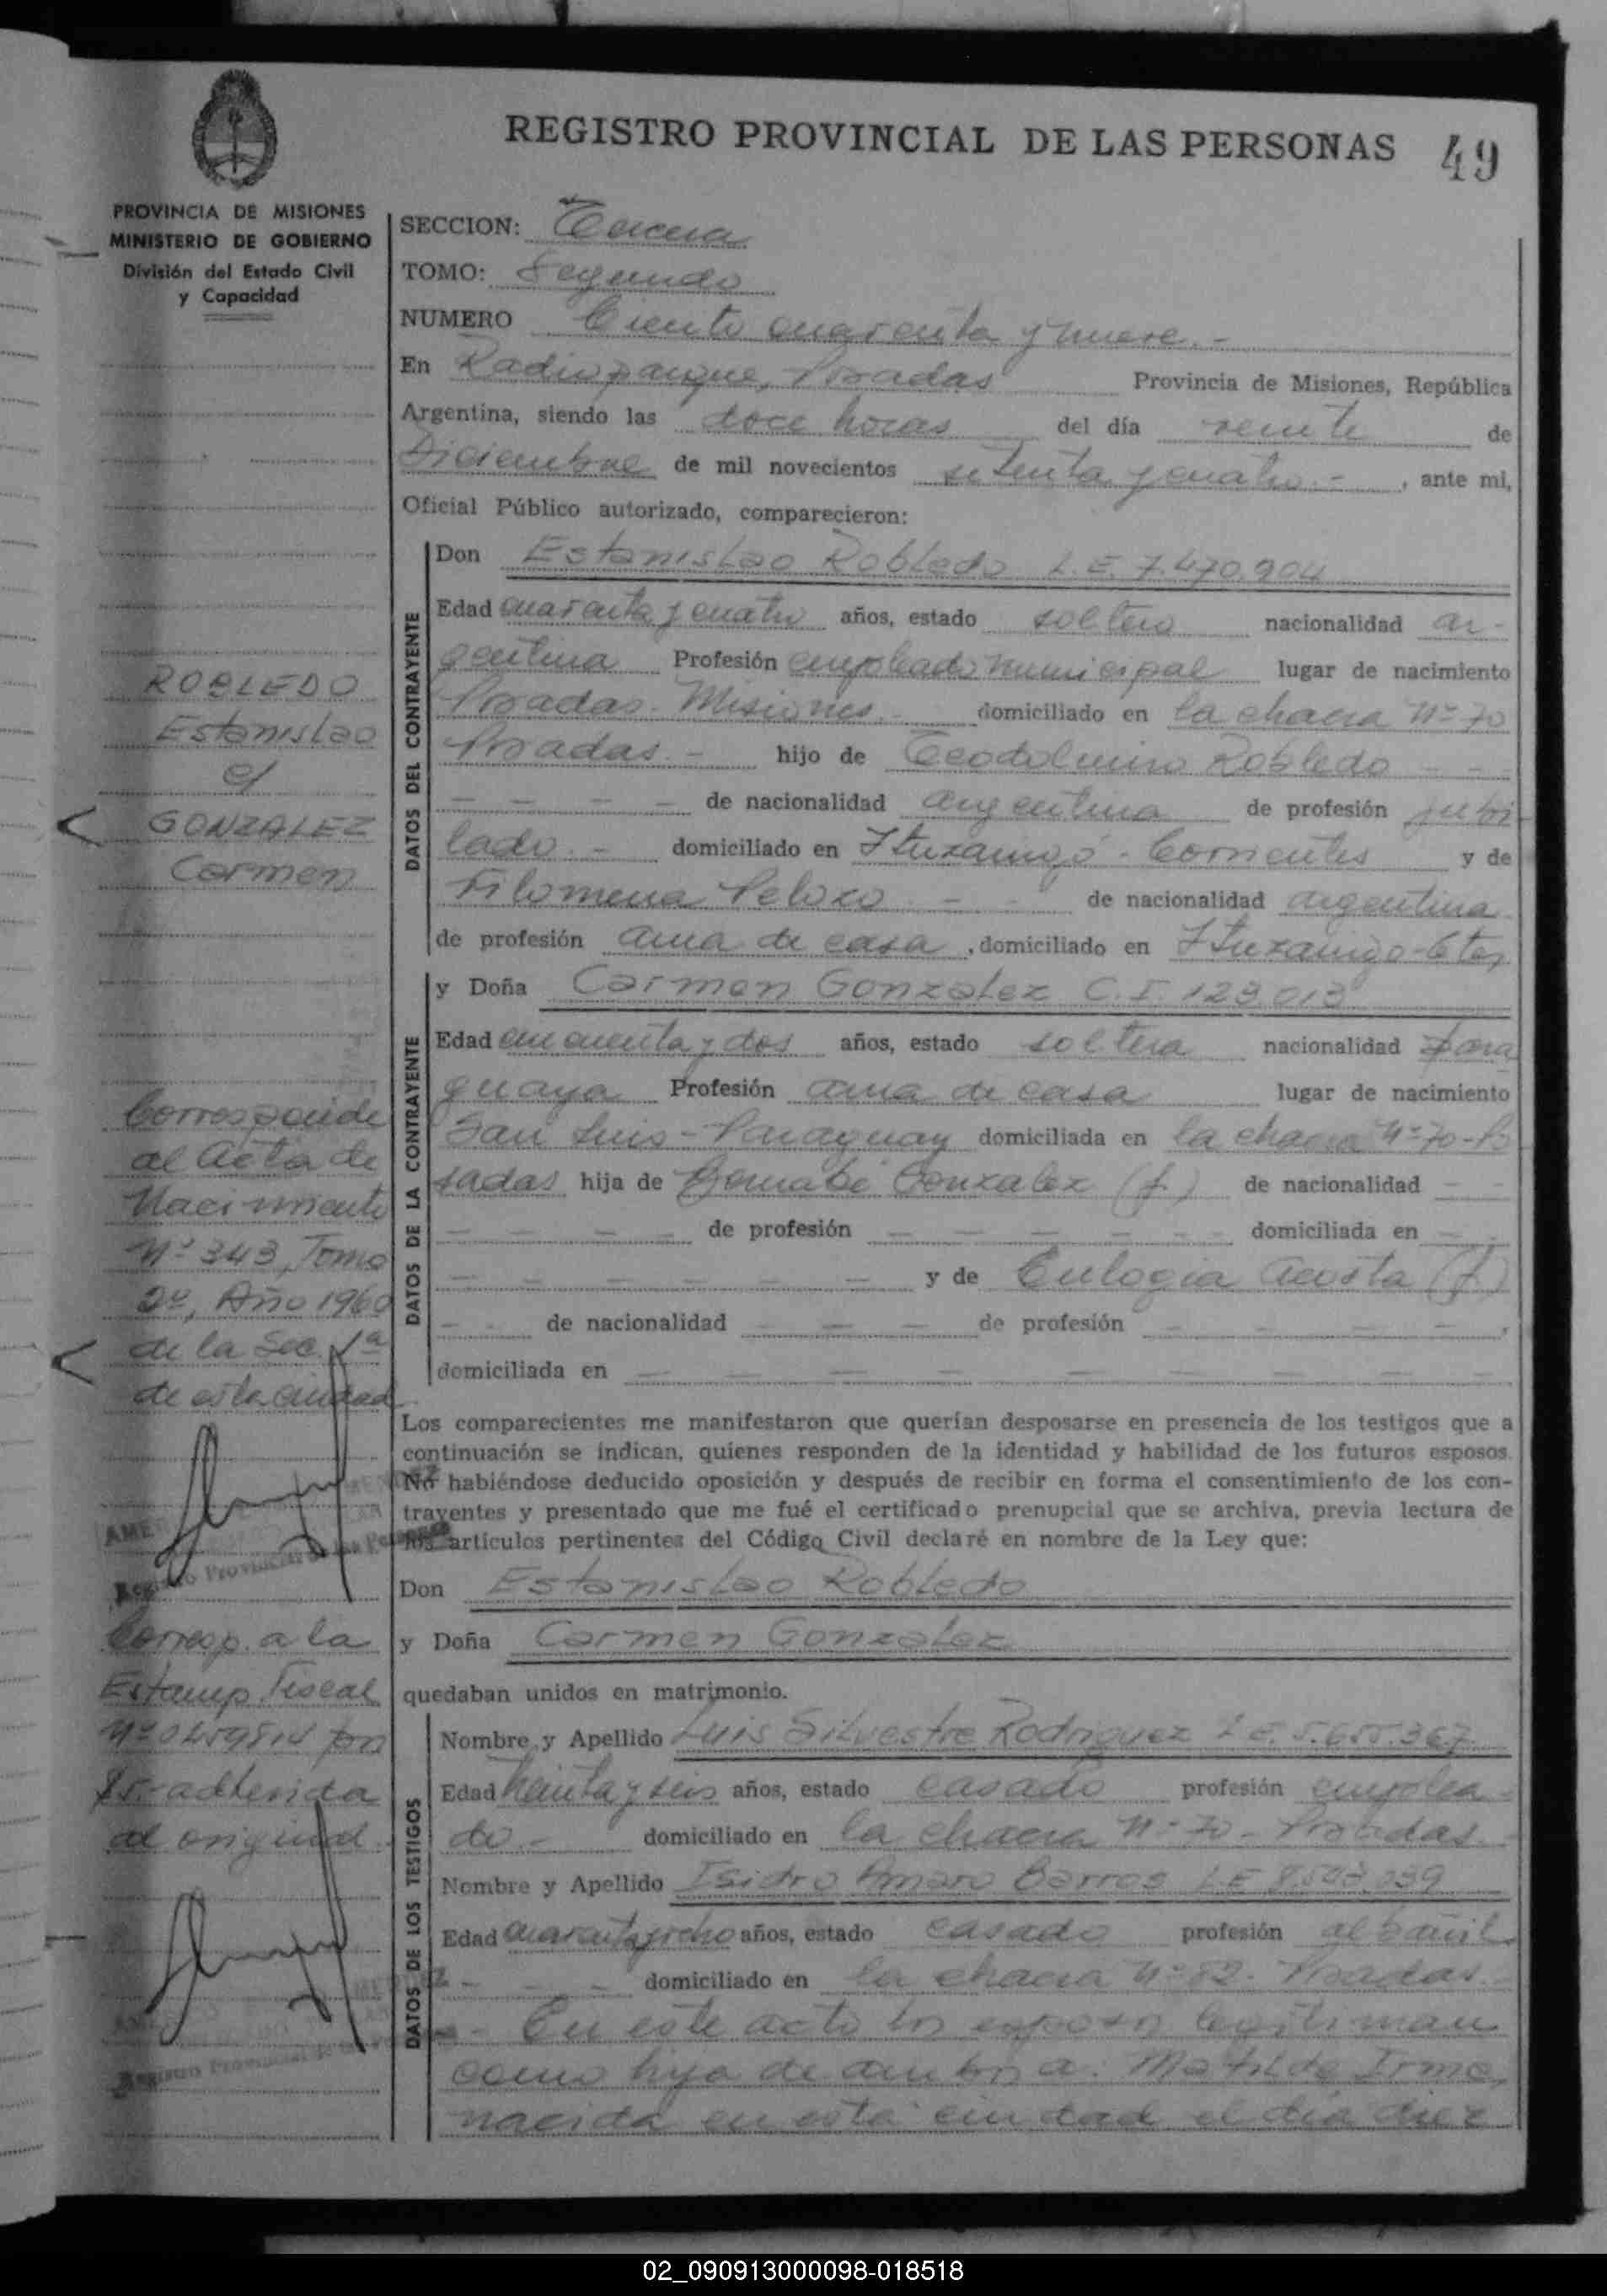 REGISTRO PROVINCIAL DE LAS PERSONAS 49
PROVINCIA DE MISIONES
MINISTERIO DE GOBIERNO
División del Estado Civil
y Capacidad
SECCION: Tercera
TOMO: Segundo
NUMERO Ciento cuarenta y nueve.-
En Radioparque, Posadas Provincia de Misiones, República
Argentina, siendo las doce horas del día veinte de
Diciembre de mil novecientos setenta y cuatro.- , ante mi,
Oficial Público autorizado, comparecieron:
DATOS DEL CONTRAYENTE
Don Estanislao Robledo L.E. 7.470.904
Edad cuarenta y cuatro años, estado soltero nacionalidad ar-
gentina Profesión empleado municipal lugar de nacimiento
Posadas. Misiones.- domiciliado en la chacra Nº 70
Posadas.- hijo de Teodolmiro Robledo - -
- - - - de nacionalidad argentina de profesión jubi
lado.- domiciliado en Ituzaingó - Corrientes y de
Filomena Velozo - - de nacionalidad argentina
de profesión ama de casa , domiciliado en Ituzaingo-Ctes
DATOS DE LA CONTRAYENTE
y Doña Carmen Gonzalez C.I. 129.013
Edad cincuenta y dos años, estado soltera nacionalidad para
guaya Profesión ama de casa lugar de nacimiento
San Luis - Paraguay domiciliada en la chacra Nº 70-Po
sadas hija de Bernabé Gonzalez (f.) de nacionalidad - -
- - - - de profesión - - - - - domiciliada en - -
- - - - - - y de Eulogia Acosta (f.)
- - de nacionalidad - - - de profesión - - - - ,
domiciliada en - - - - - - - - -
Los comparecientes me manifestaron que querían desposarse en presencia de los testigos que a
continuación se indican, quienes responden de la identidad y habilidad de los futuros esposos.
No habiéndose deducido oposición y después de recibir en forma el consentimiento de los con-
trayentes y presentado que me fué el certificado prenupcial que se archiva, previa lectura de
los artículos pertinentes del Código Civil declaré en nombre de la Ley que:
Don Estanislao Robledo
y Doña Carmen Gonzalez
quedaban unidos en matrimonio.
DATOS DE LOS TESTIGOS
Nombre y Apellido Luis Silvestre Rodriguez L.E. 5.655.367
Edad treinta y seis años, estado casado profesión emplea-
do.- domiciliado en la chacra Nº 70 - Posadas.-
Nombre y Apellido Isidro Amaro Barros L.E.
Edad cuarenta y ocho años, estado casado profesión albañil
- - - domiciliado en la chacra Nº 82. Posadas.-
- En este acto los esposos legitiman
como hija de ambos a: Matilde Irma,
nacida en esta ciudad el dia diez
ROBLEDO
Estanislao
c/
GONZALEZ
Carmen
Corresponde
al Acta de
Nacimiento
Nº 343, Tomo
2º, Año 1960
de la Sec. 1ª
de esta ciudad
Registro Provincial de las Personas
Corresp. a la
Estamp. Fiscal
Nº 0459814 por
adherida
al original.
Registro Provincial
02_090913000098-018518